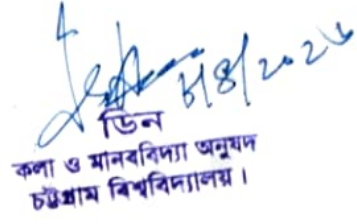 ৮/৪/২০২৬
ডিন
কলা ও মানববিদ্যা অনুষদ
চট্টগ্রাম বিশ্ববিদ্যালয়।